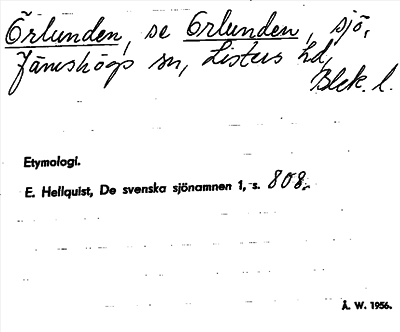 Örlunden, se Orlunden, sjö,
Jämshögs sn, Listers hd,
Blek. l.
Etymologi.
E. Hellquist, De svenska sjönamnen 1, s. 808.
Å. W. 1956.